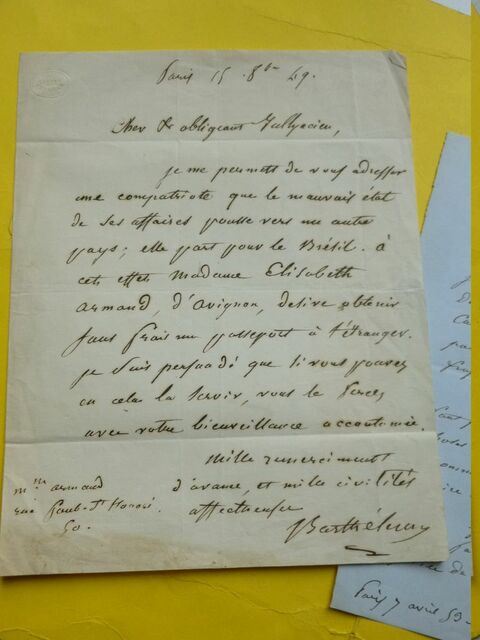 Paris 15 8bre 49.
Cher & obligeant
je me permets de vous adresser
une compatriote que le mauvais état
de ses affaires pousse vers un autre
pays; elle part pour le Brésil. à
cet effet Madame Elisabeth
armand, d'avignon, desire obtenir
sans frais un passeport à l'étranger.
je suis persuadé que si vous pouvez
en cela la servir, vous le ferez
avec votre bienveillance accoutumée.
Mille remerciments
d'avance, et mille civilités
affectueuses
Barthélemy
mme armand
rue faub. St honoré
50.
Paris 7 avril 59